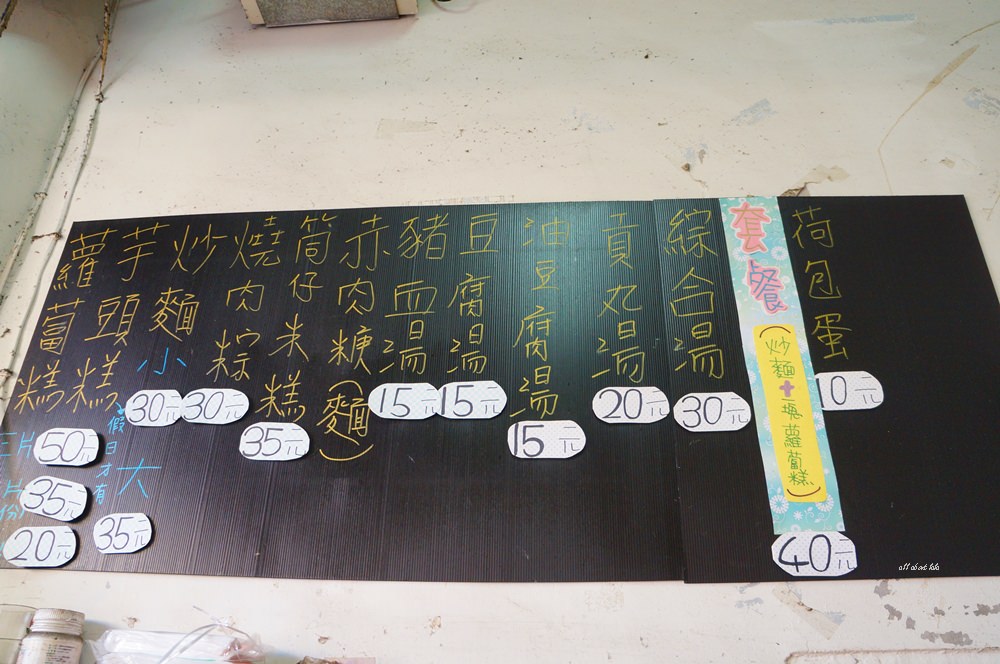 蘿蔔糕
三片
50元
片
35元
份
20元
芋頭糕
假日才有
炒麵
小
30元
大
35元
燒肉粽
30元
筒仔米糕
35元
赤肉糖(麵)
豬血湯
15元
豆腐湯
15元
油豆腐湯
15元
貢丸湯
20元
綜合湯
30元
套餐
(炒麵+一塊蘿蔔糕)
40元
荷包蛋
10元
all about lulu